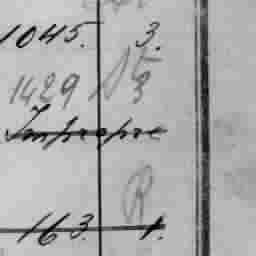 1045. 3.
1429 3
Impropre
R
163. 1.